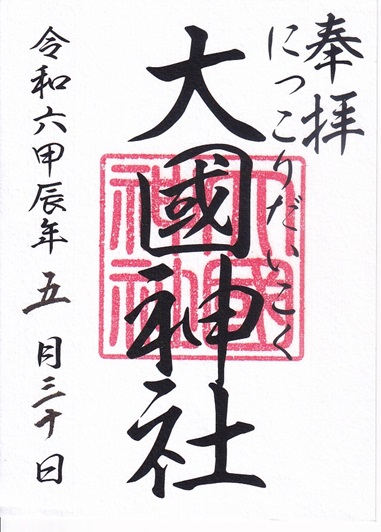 奉拝
にっこりだいこく
大國神社
大國神社
令和六甲辰年五月三十日